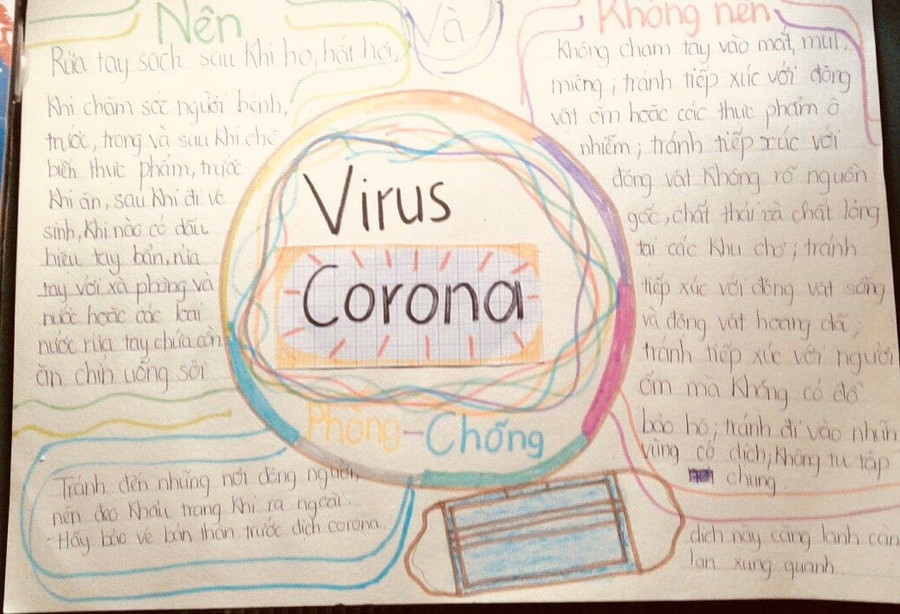 Nên
Và
Không nên
Rửa tay sạch sau khi ho, hắt hơi,
khi chăm sóc người bệnh,
trước, trong và sau khi chế
biến thực phẩm, trước
khi ăn, sau khi đi vệ
sinh, khi nào có dấu
hiệu tay bẩn, rửa
tay với xà phòng và
nước hoặc các loại
nước rửa tay chứa cồn
ăn chín uống sôi
Virus
Corona
Phòng - Chống
Không chạm tay vào mắt, mũi,
miệng; tránh tiếp xúc với động
vật ốm hoặc các thực phẩm ô
nhiễm; tránh tiếp xúc với
động vật không rõ nguồn
gốc, chất thải và chất lỏng
tại các khu chợ; tránh
tiếp xúc với động vật sống
và động vật hoang dã,
tránh tiếp xúc với người
ốm mà không có đồ
bảo hộ; tránh đi vào những
vùng có dịch, không tụ tập
chung
Tránh đến những nơi đông người,
nên đeo khẩu trang khi ra ngoài.
- Hãy bảo vệ bản thân trước dịch corona.
dịch này càng lành càn
lan xung quanh